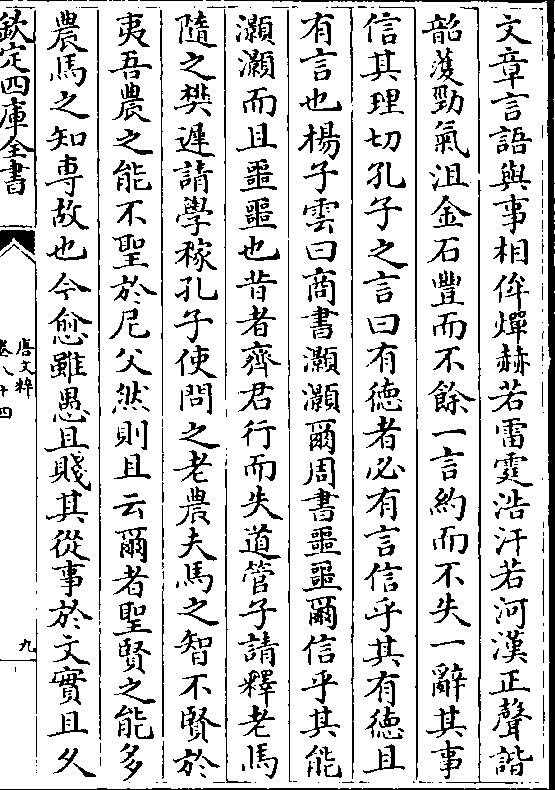 文章言語與事相侔燀赫若雷霆浩汗若河漢正聲諧
韶濩勁氣沮金石豐而不餘一言約而不失一辭其事
信其理切孔子之言曰有徳者必有言信乎其有徳且
有言也楊子雲曰商書灝灝爾周書噩噩爾信乎其能
灝灝而且噩噩也昔者齊君行而失道管子請釋老馬
隨之樊遲請學稼孔子使問之老農夫馬之智不賢於
夷吾農之能不聖於尼父然則且云爾者聖賢之能多
農馬之知専故也今愈雖愚且賤其從事於文實且久
欽定四庫全書
唐文粹
卷八十四
九